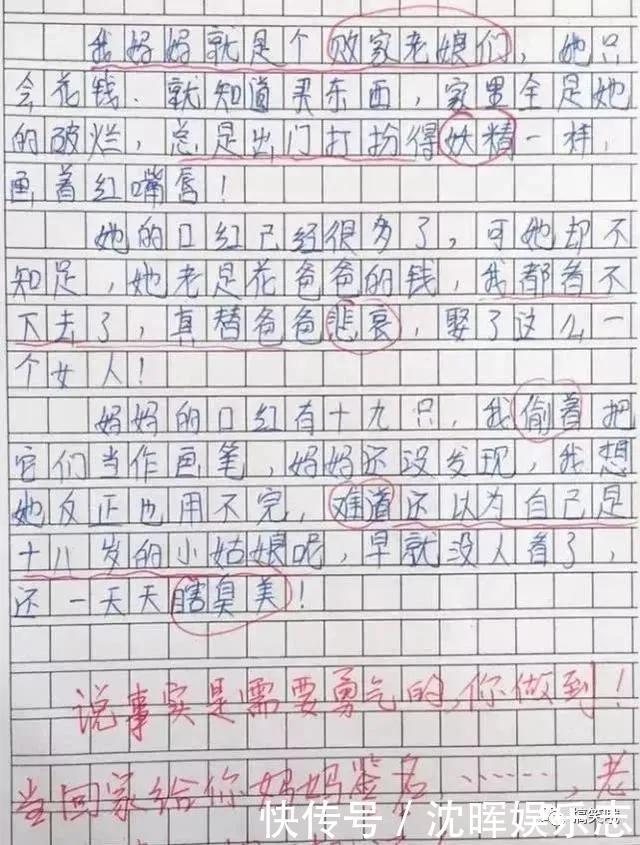 我妈妈就是个败家老娘们，她只
会花钱．就知道买东西，家里全是她
的破烂，总是出门打扮得妖精一样，
画着红嘴唇！
她的口红已经很多了，可她却不
知足，她老是花爸爸的钱，我都看不
下去了，真替爸爸悲哀，娶了这么一
个女人！
妈妈的口红有十九只，我偷着把
它们当作画笔，妈妈还没发现，我想
她反正也用不完，难道还以为自己是
十八岁的小姑娘呢，早就没人看了，
还一天天瞎臭美！
说事实是需要勇气的，你做到！
当回家给你妈妈签名……，老
快传号／沈晖娱乐志